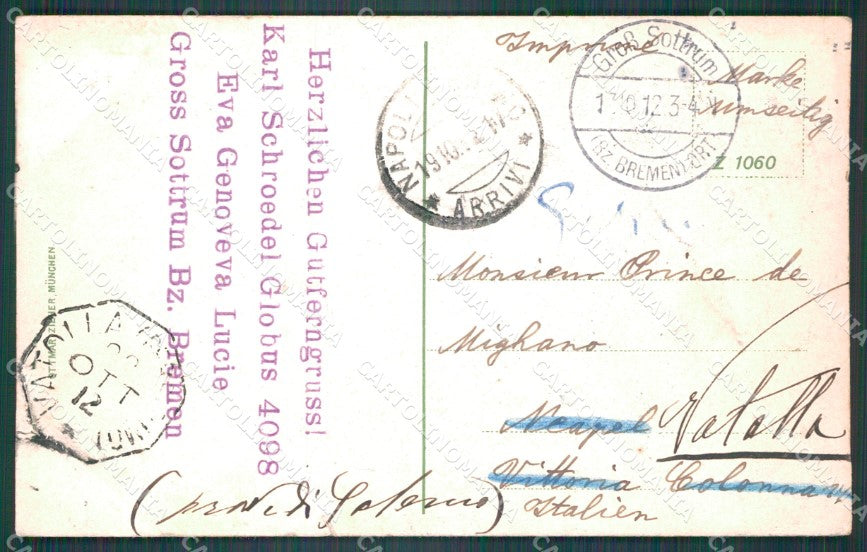 Herzlichen Gutferngruss!
Karl Schroedel Globus 4098
Eva Genoveva Lucie
Gross Sottrum Bz. Bremen
Marke
umseitig
Groß Sottrum
12 3-4
(BZ. BREMEN)
Z 1060
NAPOLI
ARRIVI
Monsieur Prince de
Mighano
Neapel Vatolla
Vittoria Colonna
Italien
(prov. di Salerno)
VATOLLA
OTT
12
MÜNCHEN
CARTOLINOMANIA